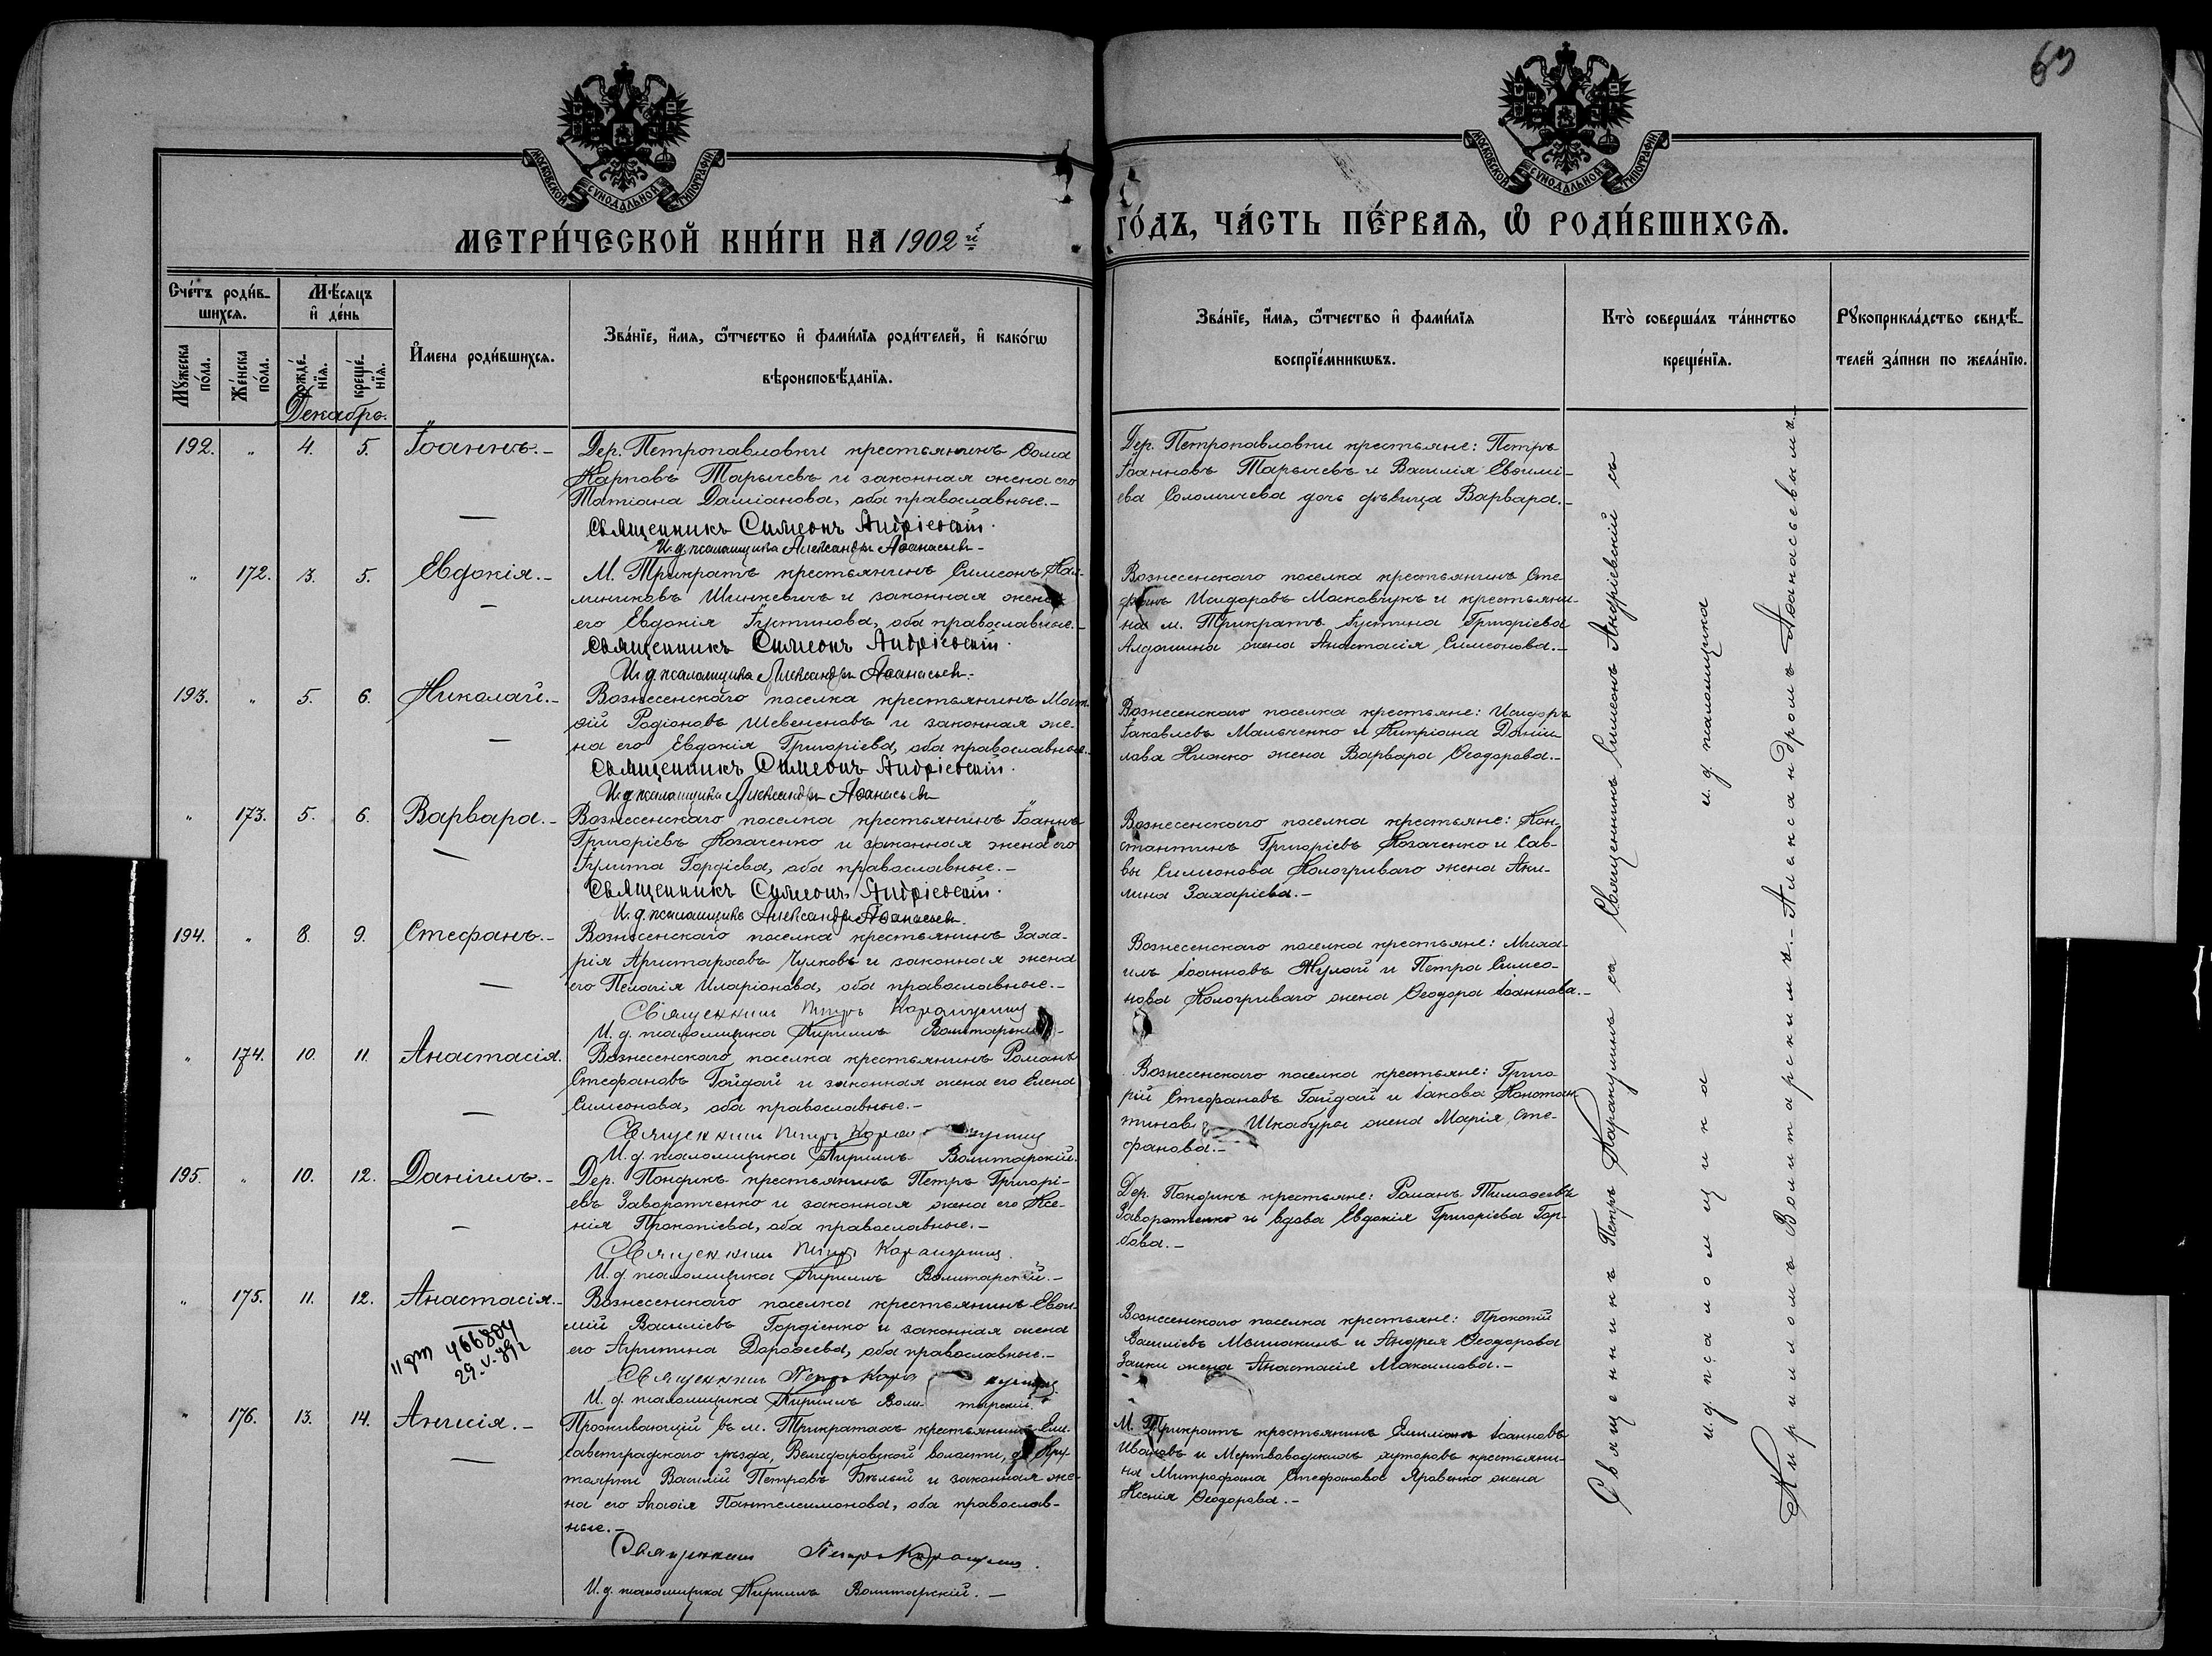 63
МОСКОВСКОЙ СУНОДАЛЬНОЙ ТИПОГРАФІИ
МОСКОВСКОЙ СУНОДАЛЬНОЙ ТИПОГРАФІИ
МЕТРИ́ЧЕСКОЙ КНИ́ГИ НА 1902й
ГО́ДЪ, ЧА́СТЬ ПЕ́РВАЯ, Ѡ҆ РОДИ́ВШИХСЯ.
Сче́тъ роди́в-
шихся.
Мѣ́сяцъ
и҆ де́нь
Мꙋжеска по́ла.
Же́нска по́ла.
рожде́нїя.
креще́нїя.
И҆мена роди́вшихся.
Зва́нїе, и҆́мя, ѻ҆́тчество и҆ фами́лїя роди́телей, и҆ како́гѡ
вѣроисповѣ́данїя.
Зва́нїе, и҆́мя, ѻ҆́тчество и҆ фами́лїя
воспрїе́мникѡвъ.
Кто̀ соверша́лъ та́инство
креще́нїя.
Рꙋкоприкла́дство свидѣ́-
телей за́писи по жела́нїю.
Декабрь.
192. " 4. 5. Іоаннъ.-
Дер. Петропавловки крестьянинъ Ѳома
Карповъ Тарычевъ и законная жена его
Татіана Даміанова, оба православные.-
Священникъ Симеонъ Андріевскій.
И. д. псаломщика Александръ Аѳанасьевъ-
Дер. Петропавловки крестьяне: Петръ
Іоанновъ Тарычевъ и Василія Евѳимі-
ева Соломичева дочь дѣвица Варвара.-
" 172. 3. 5. Евдокія.-
М. Трикратъ крестьянинъ Симеонъ Кал-
линиковъ Шинкевичъ и законная жена
его Евдокія Іустинова, оба православные.-
Священникъ Симеонъ Андріевскій.
И. д. псаломщика Александръ Аѳанасьевъ.-
Вознесенскаго поселка крестьянинъ Сте-
фанъ Исидоровъ Московчукъ и крестьяни-
на м. Трикратъ Іустина Григоріева
Алдошина жена Анастасія Симеонова.-
193. " 5. 6. Николай.-
Вознесенскаго поселка крестьянинъ
Родіоновъ и законная же-
на его Евдокія Григоріева, оба православные.
Священникъ Симеонъ Андріевскій.
И. д. псаломщика Александръ Аѳанасьевъ
Вознесенскаго поселка крестьяне: Исидоръ
Іаковлевъ Мальченко и Кипріана Даніи-
лова жена Варвара Ѳеодорова.-
" 173. 5. 6. Варвара.-
Вознесенскаго поселка крестьянинъ Іоаннъ
Григоріевъ Козаченко и законная жена его
Іулита Гордіева, оба православные.-
Священникъ Симеонъ Андріевскій.
И. д. псаломщика Александръ Аѳанасьевъ.
Вознесенскаго поселка крестьяне: Кон-
стантинъ Григоріевъ Козаченко и Сав-
вы Симеонова Кологриваго жена Аки-
лина Захаріева.-
194. " 8. 9. Стефанъ.-
Вознесенскаго поселка крестьянинъ Заха-
рія Аристарховъ Чулковъ и законная жена
его Пелагія Иларіонова, оба православные.-
Священникъ Петръ Каракулинъ
И. д. псаломщика Кириллъ Волитарскій-
Вознесенскаго поселка крестьяне: Миха-
илъ Іоанновъ Жулай и Петра Симео-
нова Кологриваго жена Ѳеодора Іоаннова.-
" 174. 10. 11. Анастасія.
Вознесенскаго поселка крестьянинъ Романъ
Стефановъ Гайдай и законная жена его Елена
Симеонова, оба православные.-
Священникъ Петръ Каракулинъ
И. д. псаломщика Кириллъ Волитарскій.
Вознесенскаго поселка крестьяне: Григо-
рій Стефановъ Гайдай и Іакова Констан-
тинова Шкабуры жена Марія Сте-
фанова.-
195. " 10. 12. Даніилъ.-
Дер. Пондикъ крестьянинъ Петръ Григорі-
евъ Заворотченко и законная жена его Ксе-
нія Прокопіева, оба православные.-
Священникъ Петръ Каракулинъ.
И. д. псаломщика Кириллъ Волитарскій.-
Дер. Пондикъ крестьяне: Романъ Тимоѳеевъ
Заворотченко и вдова Евдокія Григоріева Гор-
бова.-
" 175. 11. 12. Анастасія.-
466804
29.V-39
Вознесенскаго поселка крестьянинъ Евѳи-
мій Василіевъ Гордіенко и законная жена
его Агриппина Дороѳеева, оба православные.-
Священникъ Петръ Каракулинъ
И. д. псаломщика Кириллъ Волитарскій.
Вознесенскаго поселка крестьяне: Прокопій
Василіевъ и Андрея Ѳеодорова
Заики жена Анастасія Максимова.-
" 176. 13. 14. Анисія.-
Проживающій въ м. Трикратахъ крестьянинъ Ели-
саветградскаго уѣзда, волости, д.
Василій Петровъ Бѣлый и законная же-
на его Агаѳія Пантелеимонова, оба православ-
ные.-
Священникъ Петръ Каракулинъ.
И. д. псаломщика Кириллъ Волитарскій.-
М. Трикратъ крестьянинъ Емиліанъ Іоанновъ
Ивановъ и Мертвоводскихъ хуторовъ крестьяни-
на Митрофана Стефанова Яровенко жена
Ксенія Ѳеодорова.-
Священникъ Петръ Каракулинъ съ Священникъ Симеонъ Андріевскій съ
и. д. псаломщика и. д. псаломщика
Кирилломъ Волитарскимъ.- Александромъ Аѳанасьевымъ.-